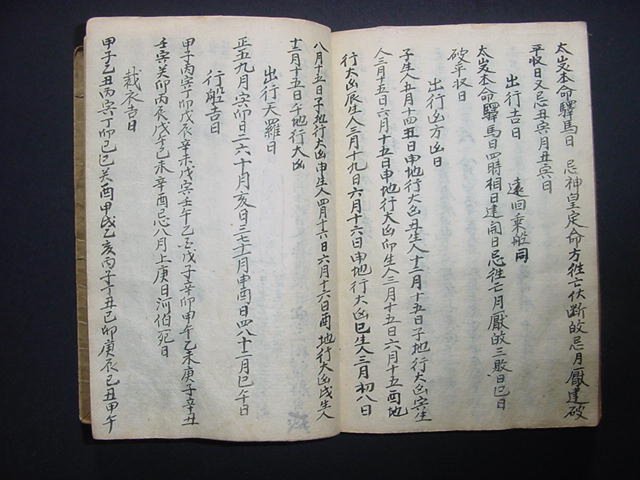 太歲本命驛馬日 忌神皇定命方徃亡伏斷的忌月厭建破
平收日又忌丑與月丑與日
出行吉日 遠回乘船同
太歲本命驛馬日四時相日建開日忌徃亡月厭的三敗日巳日
破平收日
出行凶方凶日
子生人五月十四五日申地行大凶丑生人十二月十五日子地行大凶寅生
人三月十五日六月十五日申地行大凶卯生人三月十五日六月十五酉地
行大凶辰生人三月十九日六月十六日申地行大凶巳生人三月初八日
八月十五日子地行大凶申生人四月十六日六月十六日酉地行大凶戌生人
十二月十五日午地行大凶
出行天羅日
正五九月寅卯日二六十月亥日三七十一月申酉日四八十二月巳午日
行船吉日
甲子丙寅丁卯戊辰辛未戊寅壬午乙丑戊子辛卯甲午乙未庚子辛丑
壬寅癸卯丙辰戊午己未辛酉忌八月上庚日河伯死日
裁衣吉日
甲子乙丑丙寅丁卯己巳癸酉甲戌乙亥丙子丁丑己卯庚辰己丑甲午